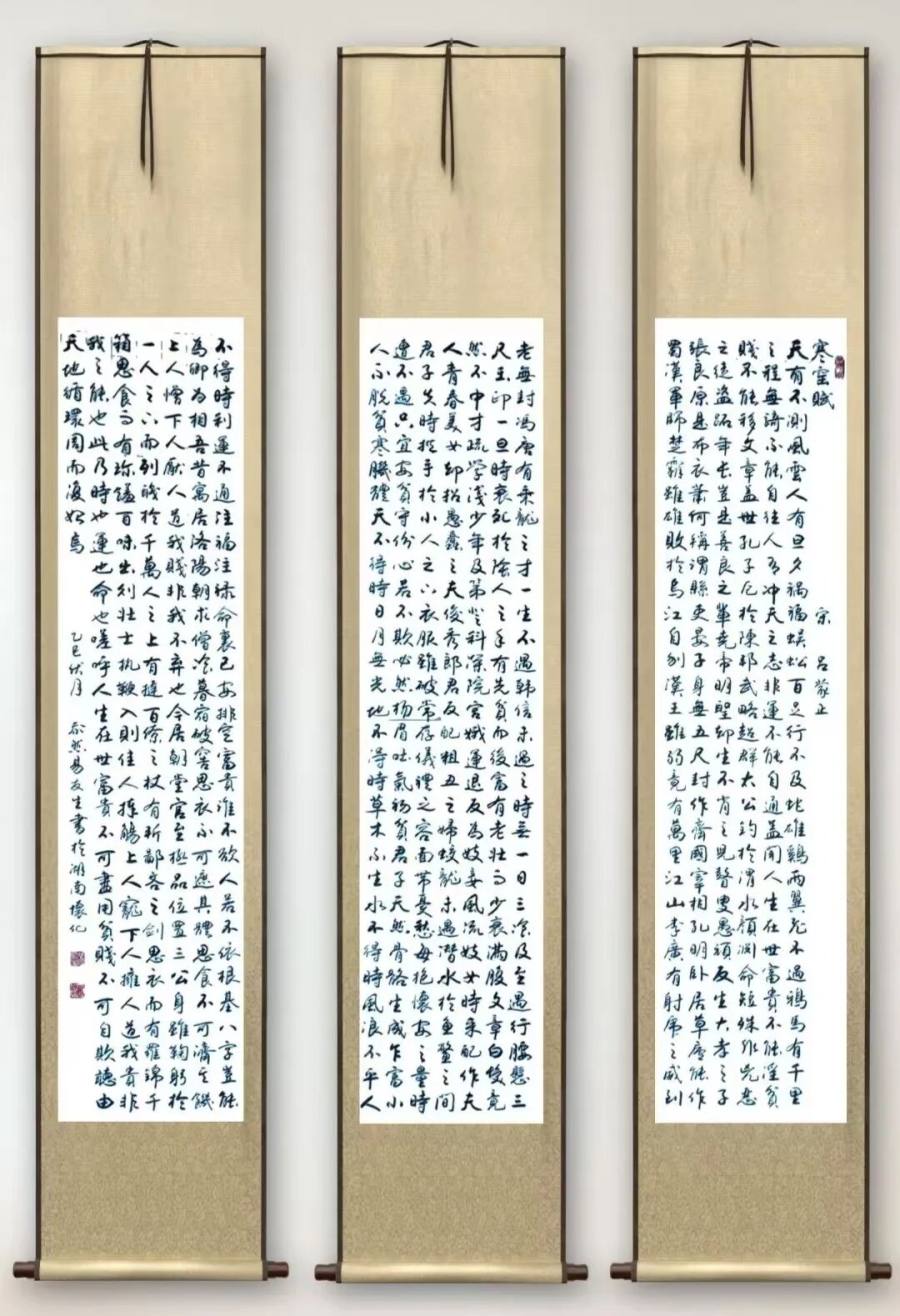 寒窑賦 宋 呂蒙正
天有不測風雲人有旦夕禍福蜈蚣百足行不及蛇雄鷄兩翼飛不過鴉馬有千里
之程無騎不能自往人有冲天之志非運不能自通蓋聞人生在世富貴不能淫貧
賤不能移文章蓋世孔子厄於陳邦武略超群太公釣於渭水顏淵命短殊非兇惡
之徒盜跖年長豈是善良之輩堯帝明聖却生不肖之兒瞽叟愚頑反生大孝之子
張良原是布衣蕭何稱謂縣吏晏子身無五尺封作齊國宰相孔明卧居草廬能作
蜀漢軍師楚霸雖雄敗於烏江自刎漢王雖弱竟有萬里江山李廣有射虎之威到
老無封馮唐有乘龍之才一生不遇韓信未遇之時無一日三飡及至遇行腰懸三
尺玉印一旦時衰死於陰人之手有先貧而後富有老壯而少衰滿腹文章白髮竟
然不中才疏学淺少年及第登科深院宫娥運退反為妓妾風流妓女時来配作夫
人青春美女却招愚蠢之夫俊秀郎君反配粗丑之婦蛟龍未遇潜水於魚鱉之間
君子失時拱手於小人之下衣服雖破常存儀禮之容面帶憂愁每抱懷安之量時
遭不遇只宜安貧守份心若不欺必然揚眉吐氣初貧君子天然骨骼生成乍富小
人不脱貧寒肌體天不得時日月無光地不得時草木不生水不得時風浪不平人
不得時利運不通注福注禄命裏已安排定富貴誰不欲人若不依根基八字豈能
為卿為相吾昔寓居洛陽朝求僧飡暮宿破窖思衣不可遮其體思食不可濟其饑
上人憎下人厭人道我賤非我不弃也今居朝堂官至極品位置三公身雖鞠躬於
一人之下而列職於千萬人之上有撻百僚之杖有斬鄙吝之劍思衣而有羅錦千
箱思食而有珍饈百味出則壯士执鞭入則佳人捧觴上人寵下人擁人道我貴非
我之能也此乃時也運也命也嗟呼人生在世富貴不可盡用貧賤不可自欺聽由
天地循環周而復始焉
乙巳伏月 易友生書於湖南懷化